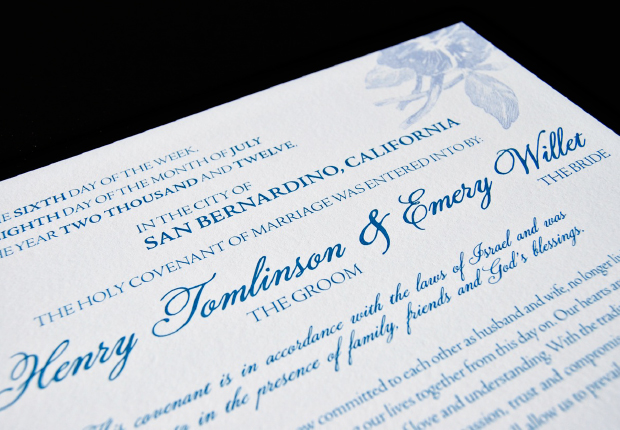 SIXTH DAY OF THE WEEK,
DAY OF THE MONTH OF JULY
YEAR TWO THOUSAND AND TWELVE,
IN THE CITY OF
SAN BERNARDINO, CALIFORNIA
THE HOLY COVENANT OF MARRIAGE WAS ENTERED INTO BY:
Henry Tomlinson & Emery Willet
THE GROOM THE BRIDE
covenant is in accordance with the laws of Israel and was
in the presence of family, friends and God's blessings.
committed to each other as husband and wife, no longer
our lives together from this day on. Our hearts
love and understanding. With the
trust and
allow us to